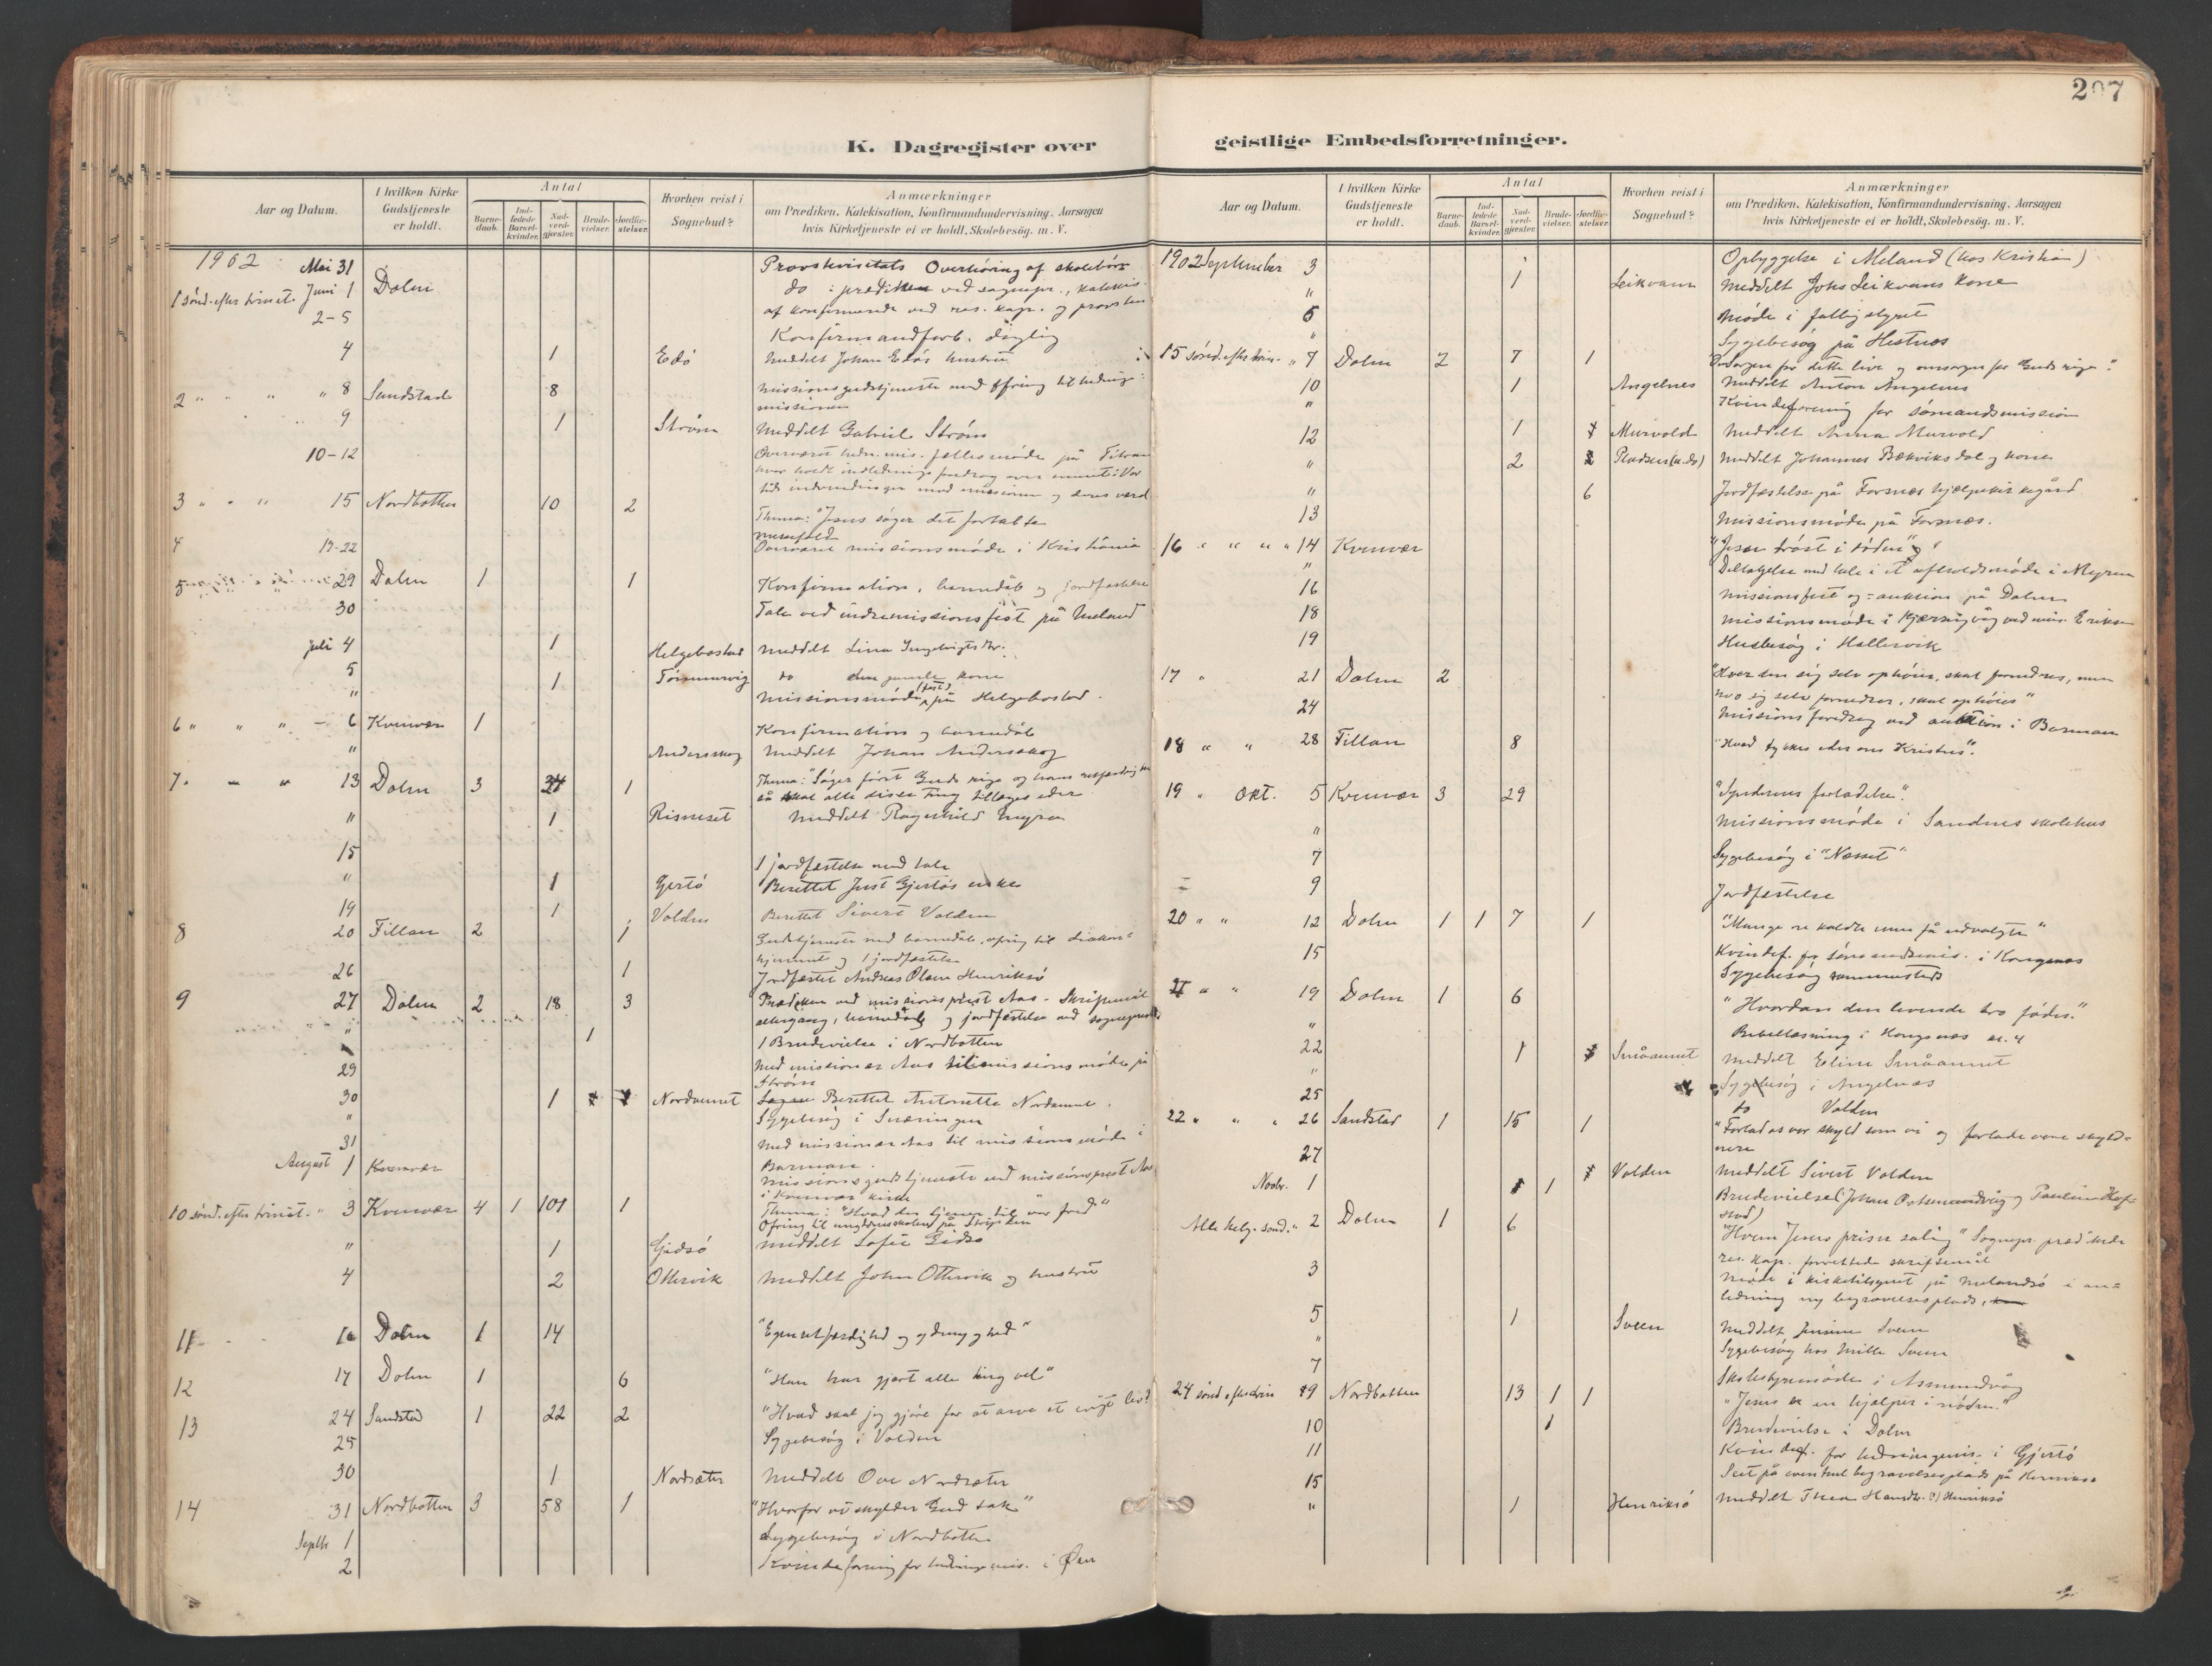 207
K. Dagregister over geistlige Embedsforretninger.
Aar og Datum.
I hvilken Kirke Gudstjeneste er holdt.
Antal
Barne-daab.
Ind-ledede Barsel-kvinder.
Nad-verd-gjæster.
Brude-vielser.
Jordfæ-stelser.
Hvorhen reist i Sognebud?
Anmærkninger
om Prædiken, Katekisation, Konfirmandundervisning, Aarsagen
hvis Kirketjeneste ei er holdt, Skolebesøg, m. V.
1902 Mai 31 Provstevisitats Overhøring af skolebørn
1 sønd. efter trinit. Juni 1 Dolm do : prædiken ved sognepr., katekis.
af konfirmerede ved res. kap. og provsten
2-5 Konfirmandforb. daglig
4 1 Edø Meddelt Johan Edøs hustru
2 " " " 8 Sandstad 8 Missionsgudstjeneste med offring til hedninge-
missionen
9 1 Strøm Meddelt Gabriel Strøm
10-12 Overværet hedn. mis. fællesmøde på Titran
hvor holdt indlednings foredrag over emnet: Vor
tids indvendinger mod missionen og deres værd
3 " " " 15 Nordbotten 10 2 Thema: "Jesus søger det fortabte
4 19-22 Overværet missionsmøde i Kristiania
5 29 Dolm 1 1 Konfirmation, barnedåb og jordfæstelse
30 Tale ved indremissionsfest på Meland
Juli 4 1 Helgebostad Meddelt Lina Ingebrigtsdtr.
5 1 do den gamle kone
" Missionsmøde (fest) på Helgebostad.
6 " " " - 6 Kvenvær 1 Konfirmation og barnedåb
" Andersskog Meddelt Johan Andersskog
7 - - " 13 Dolm 3 1 Thema: "Søger først Guds rige og hans retfærdighed
så skal alle disse ting tillægges eder
" 1 Risneset Meddelt Ragnhild Myra
15 1 jordfæstelse med tale
" 1 Gjertø Berettet Just Gjertøs enke
19 1 Volden Berettet Sivert Volden
8 20 Fillan 2 1 Gudstjeneste med barnedåb, ofring til diakon-
hjemmet og 1 jordfæstelse
26 1 Jordfæstet Andreas Olsen Henriksø
9 27 Dolm 2 18 3 Prædiken ved missionsprest Aas - Skriftemål
altergang, barnedåb og jordfæstelse ved sognepresten
" 1 1 Brudevielse i Nordbotten
29 Med missionær Aas til missionsmøde på
Strøm
30 1 Nordannet Berettet Antonette Nordannet.
" Sygebesøg i Sværingen
31 Med missionær Aas til missionsmøde i
Barman.
August 1 Kvenvær Missionsgudstjeneste ved missionsprest Aas
i Kvenvær kirke
10 sønd. efter trinit. " 3 Kvenvær 4 1 101 1 Thema: "Hvad der tjener til vor fred"
Ofring til ungdomsskolen på Strinden
" 1 Gjidsø Meddelt Sofie Gidsø
4 2 Ottervik Meddelt John Ottervik og hustru
11 - - 10 Dolm 1 14 "Egenretfærdighed og ydmyghed"
12 17 Dolm 1 6 "Han har gjort alle ting vel"
13 24 Sandstad 1 22 2 "Hvad skal jeg gjøre for at arve et evigt liv?
25 Sygebesøg i Volden
30 1 Nordsæter Meddelt Ove Nordsæter
14 31 Nordbotten 3 58 1 "Hvorfor vi skylder Gud tak"
Septb. 1 Sygebesøg i Nordbotten
2 Kvindeforening for hedningemis. i Øen
Aar og Datum.
I hvilken Kirke Gudstjeneste er holdt.
Antal
Barne-daab.
Ind-ledede Barsel-kvinder.
Nad-verd-gjæster.
Brude-vielser.
Jordfæ-stelser.
Hvorhen reist i Sognebud?
Anmærkninger
om Prædiken, Katekisation, Konfirmandundervisning, Aarsagen
hvis Kirketjeneste ei er holdt, Skolebesøg, m. V.
1902 September 3 Opbyggelse i Meland (hos Kristian)
" 1 Leikvam Meddelt Johs Leikvams kone
5 Møde i fattigstyret
" Sygebesøg på Hestnes
15 sønd. efter trin. " 7 Dolm 2 7 1 "Omsorgen for dette liv og omsorgen for Guds rige".
10 1 Angelnes Meddelt Anton Angelnes
" Kvindeforening for sømandsmission
12 1 Murvold Meddelt Anna Murvold
" 2 Meddelt Johannes Bækviksdal og kone
" 6 Jordfæstelse på Forsnes hjælpekirkegård
13 Missionsmøde på Forsnes.
16 " " " " 14 Kvenvær "Jesu trøst i døden"
" Deltagelse med tale i et afholdsmøde i Myren
16 Missionsfest og -auktion på Dolm
18 Missionsmøde i Kjerringvåg ved mis. Eriksen
19 Husbesøg i Hallervik
17 " 21 Dolm 2 "Hver den sig selv ophøier, skal fornedres, men
hvo sig selv fornedrer, skal ophøies"
24 Missionsforedrag ved auktion i Barman
18 " " 28 Fillan 8 "Hvad tykkes eder om Kristus".
19 " Okt. 5 Kvenvær 3 29 "Syndernes forladelse".
" Missionsmøde i Sandnes skolehus
7 Sygebesøg i "Nesset"
9 Jordfæstelse
20 " " 12 Dolm 1 1 7 1 "Mange er kaldte men få udvalgte"
15 Kvindef. for sømandsmis. i Kongsnes
Sygebesøg sammesteds
21 " " 19 Dolm 1 6 "Hvordan den levende tro fødes."
" Bibellæsning i Kongsnes
22 1 Småannet Meddelt Eline Småannet
" Sygebesøg i Angelnæs
25 do Volden
22 " " " 26 Sandstad 1 15 1 "Forlad os vor skyld som vi og forlade vore skyld-
nere
27 Volden Meddelt Sivert Volden
Novbr. 1 1 Brudevielse (Johan og Pauline
Alle helg. sønd. " 2 Dolm 1 6 "Hvem Jesus priser salig" Sognepr. præd. mens
res. kap. forrettede skriftemål
3 Møde i kirketilsynet på Melandsø i an-
ledning ny begravelsesplads,
5 1 Sveen Meddelt Jensine Sveen
" Sygebesøg hos Mille Sveen
7 Skolestyremøde i Asmundvåg
24 sønd efter trin 9 Nordbotten 13 1 1 "Jesus er en hjælper i nøden."
10 1 Brudevielse i Dolm
11 Kvindef. for hedningemis. i Gjertø
15 Seet på eventuel begravelsesplads på Henriksø
" 1 Henriksø Meddelt Thea Hansdtr. Henriksø